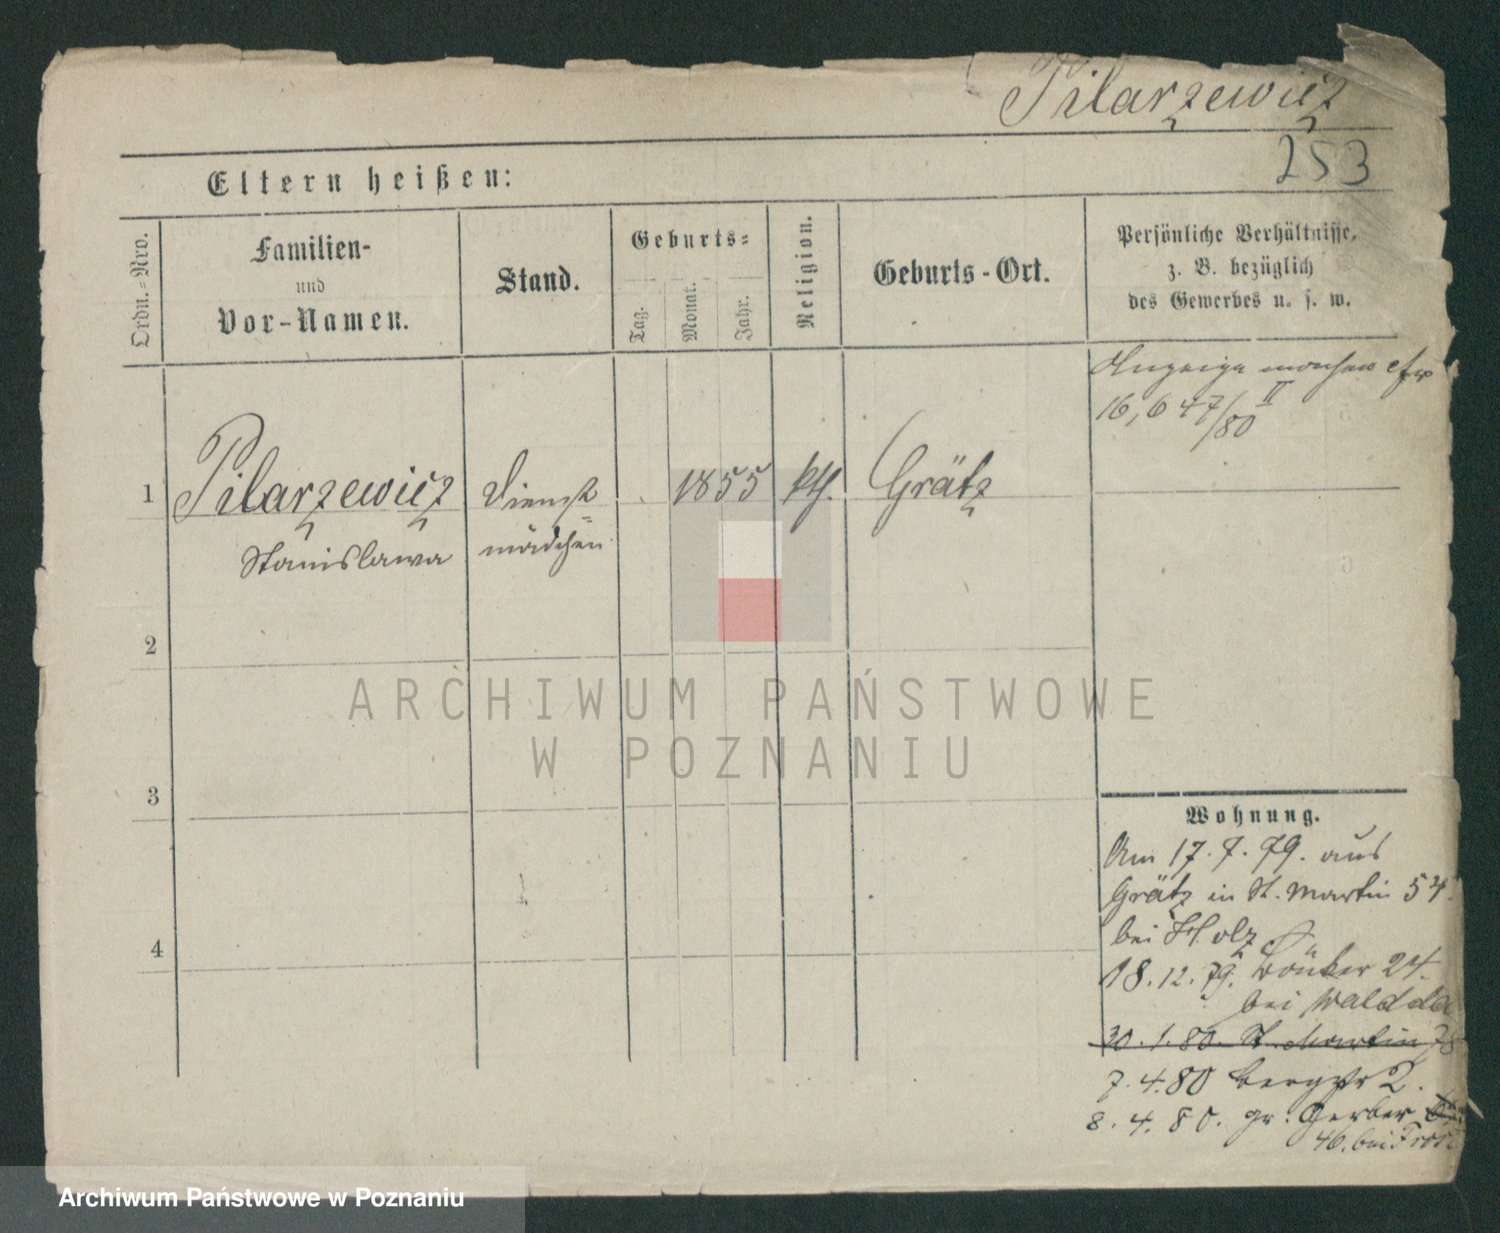 Pilarzewicz
253
Eltern heißen:
Ordn.-Nro.
Familien-
und
Vor-Namen.
Stand.
Geburts-
Tag.
Monat.
Jahr.
Religion.
Geburts-Ort.
Persönliche Verhältnisse,
z. B. bezüglich
des Gewerbes u. s. w.
Anzeige
16,647/80 II
1
Pilarzewicz
Stanislawa
Dienst=
mädchen
1855
kth.
Grätz
2
3
4
Wohnung.
Am 17. 7. 79. aus
Grätz in St. Martin 54.
bei Holz
18. 12. 79. 24.
bei
30. 1. 80. St. Martin 78
7. 4. 80 Bergstr 2.
8. 4. 80. gr: Gerber
46. bei
ARCHIWUM PAŃSTWOWE
W POZNANIU
Archiwum Państwowe w Poznaniu